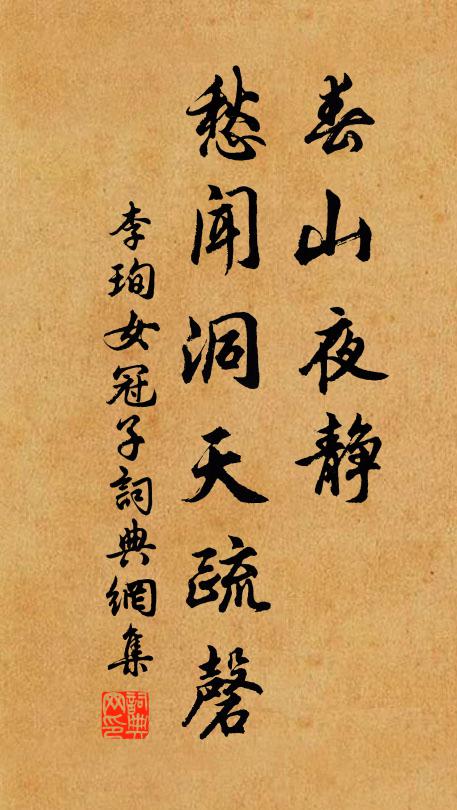 春山夜静
愁闻洞天疏磬
李珣女冠子詞典網集
詞典网印